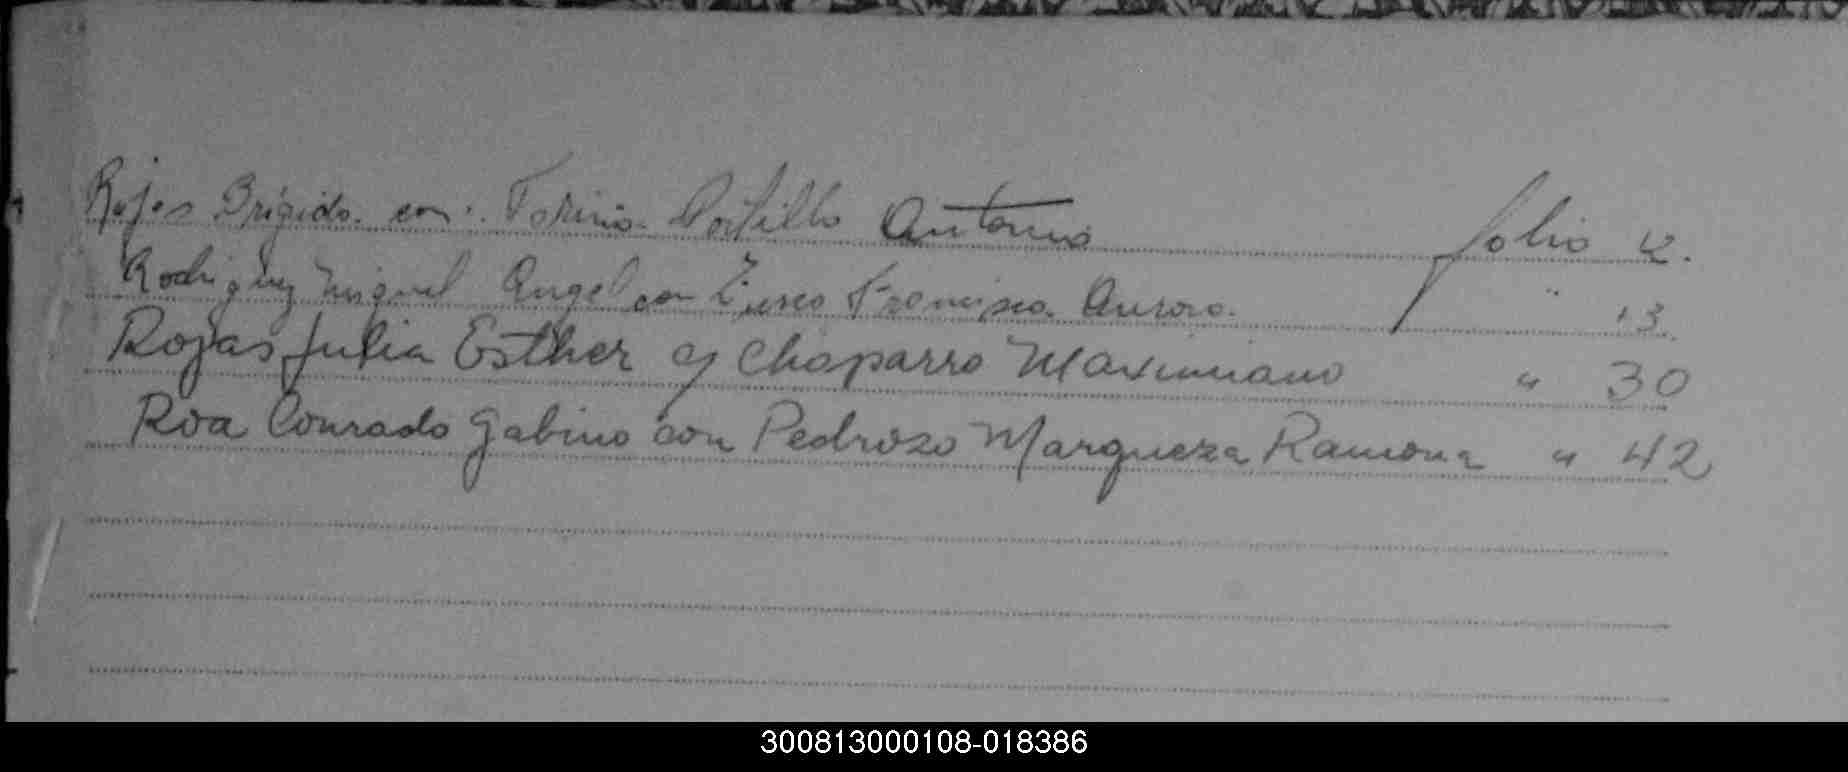 Rojas Brígido con Portillo Antonia folio
Rodriguez Miguel Angel con Francisca Aurora " 13
Rojas Julia Esther c/ Chaparro Maximiano " 30
Roa Conrado Gabino con Pedrozo Marqueza Ramona " 42
300813000108-018386